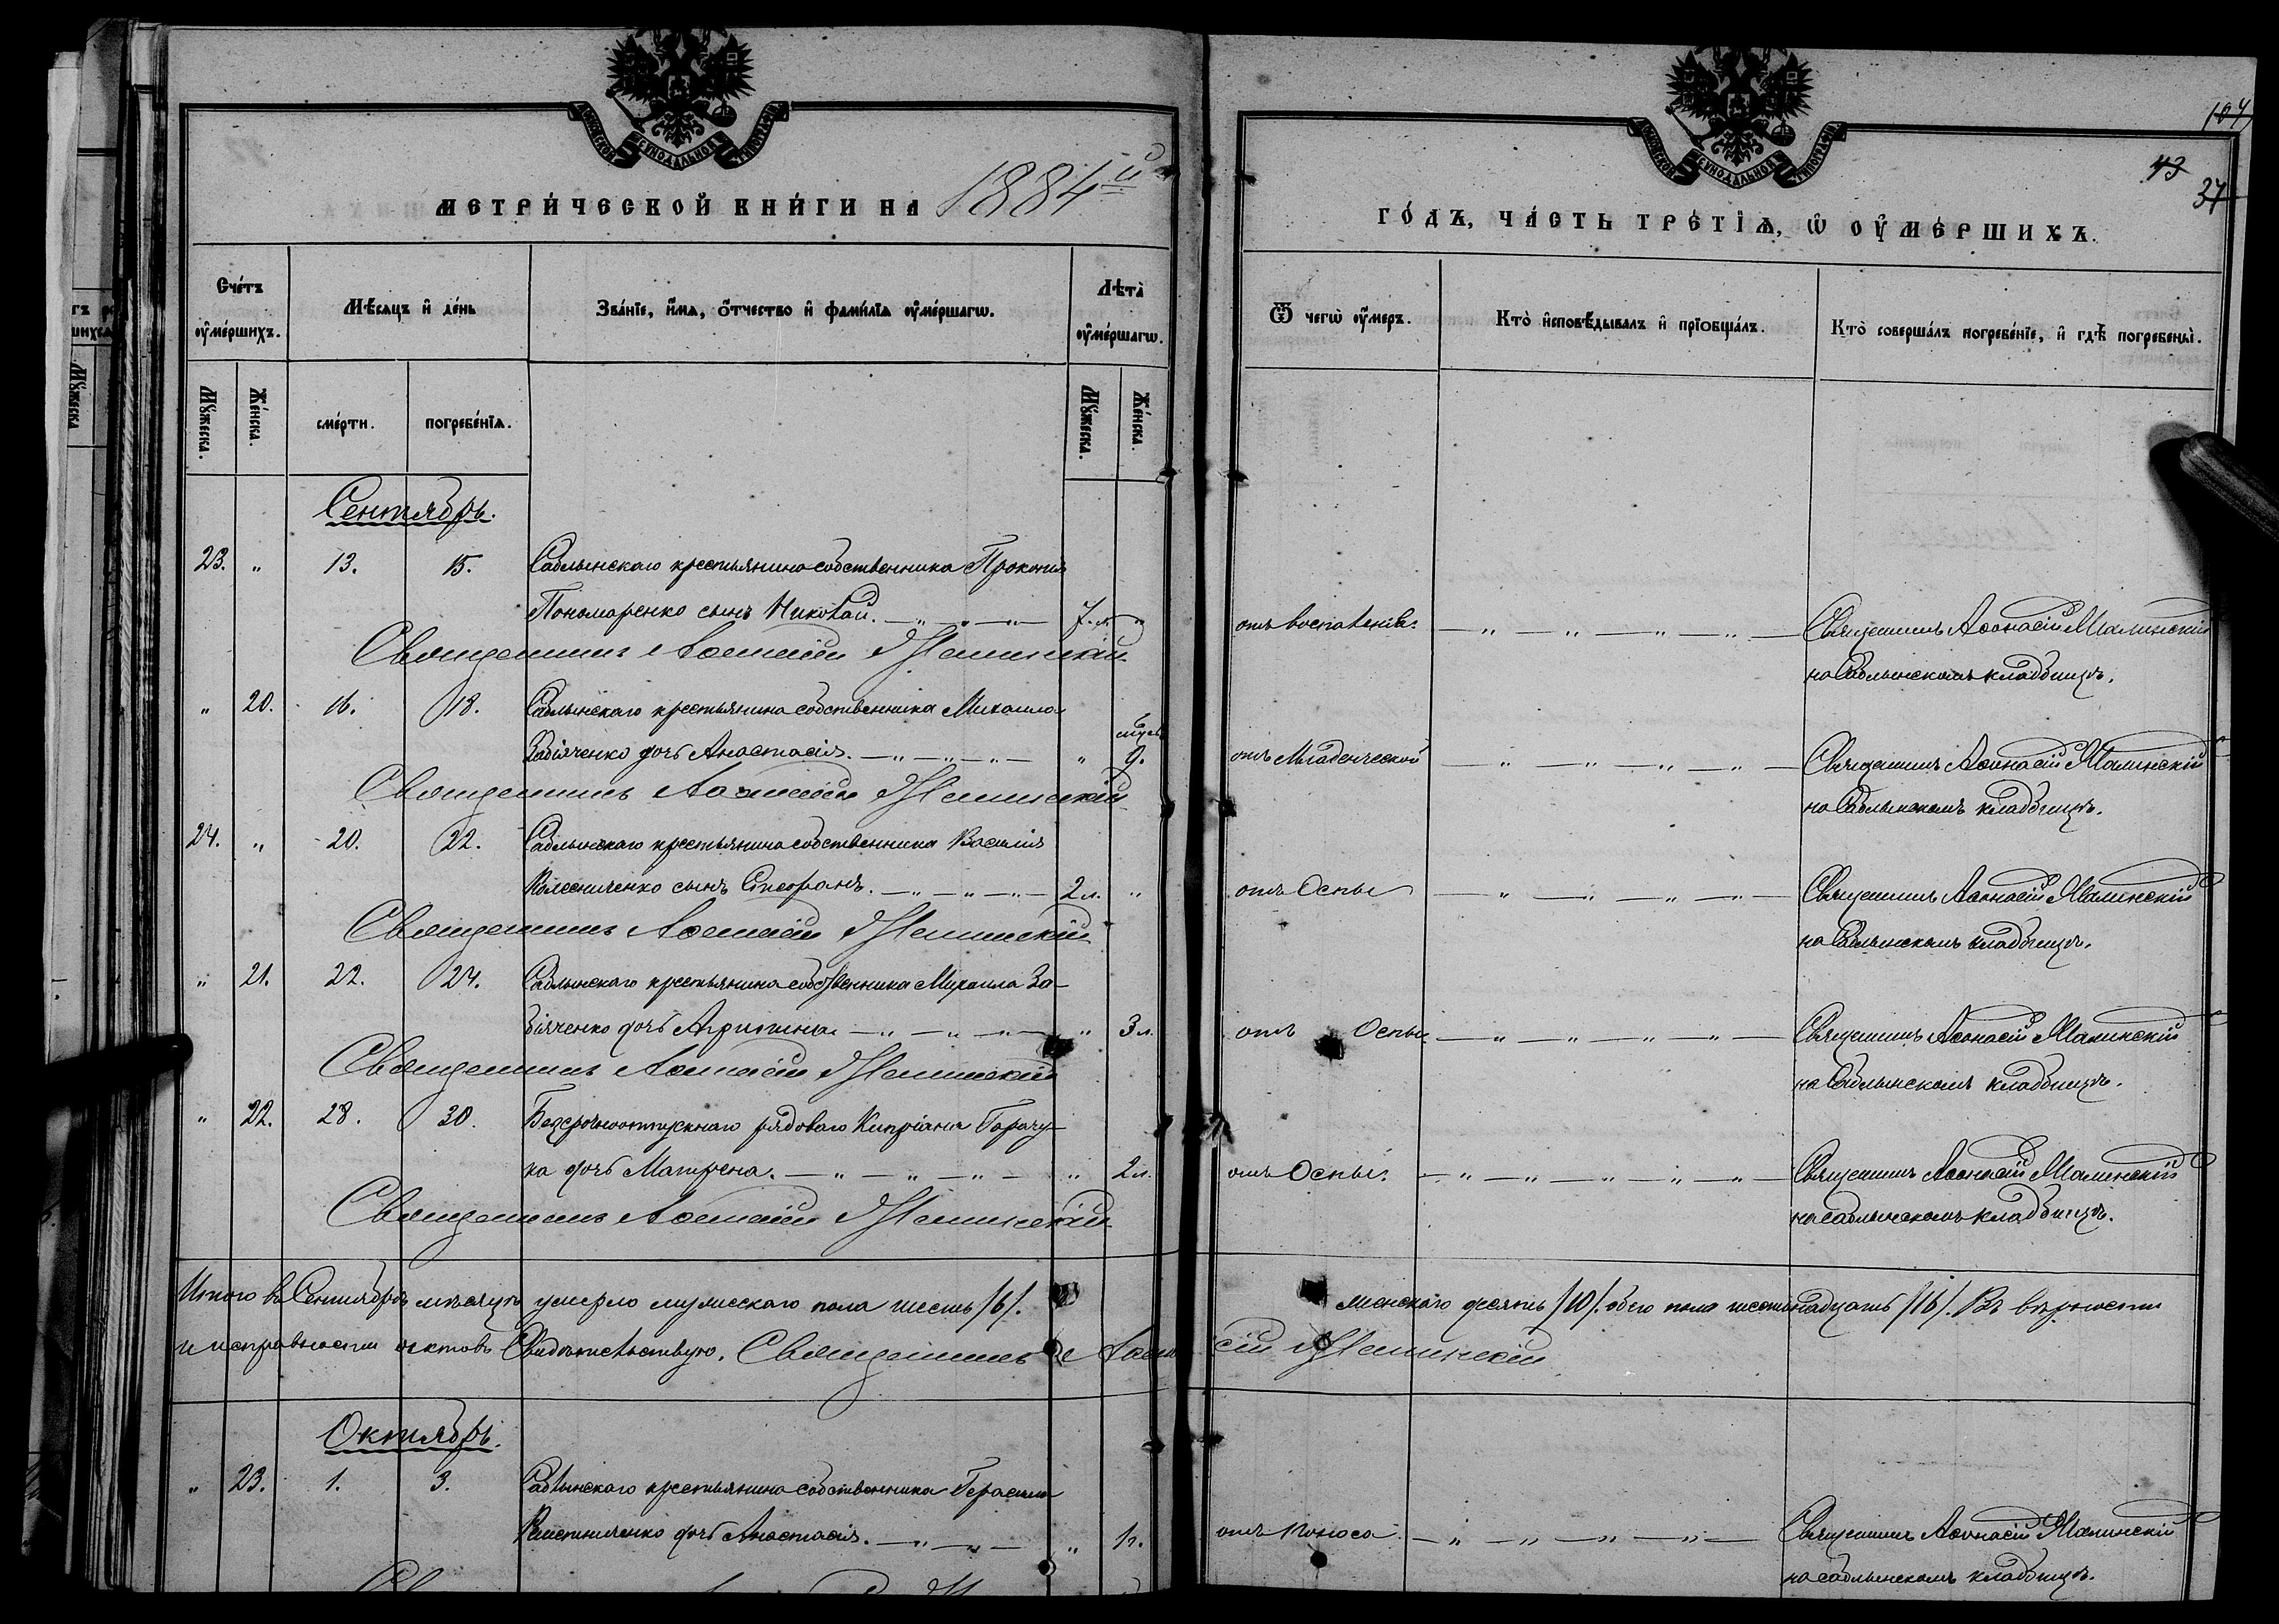 МЕТРИ́ЧЕСКОЙ КНИ́ГИ НА 1884й
ГО́ДЪ, ЧА́СТЬ ТРЕ́ТІѦ, Ѡ ОУ҆МЕ́РШИХЪ.
104
43
37
МОСКОВСКОЙ СѴНОДАЛЬНОЙ ТИПОГРАФІИ
МОСКОВСКОЙ СѴНОДАЛЬНОЙ ТИПОГРАФІИ
Сче́тъ оу҆ме́ршихъ.
Мѣ́сяцъ и҆ де́нь
Зва́ніе, и҆́мѧ, ѻ҆́тчество и҆ фами́лїѧ оу҆ме́ршагѡ.
Лѣ́та оу҆ме́ршагѡ.
Ѿ чегѡ̀ оу҆́меръ.
Кто̀ и҆сповѣ́дывалъ и҆ прїобща́лъ.
Кто̀ соверша́лъ погребе́нїе, и҆ гдѣ̀ погребены̀.
Мꙋ́жеска.
Же́нска.
сме́рти.
погребе́нїѧ.
Мꙋ́жеска.
Же́нска.
Сентябрь.
23. " 13. 15. Саблынскаго крестьянина собственника Прокопія
Пономаренко сынъ Николай. 7 л. " отъ воспаленія. Священникъ Аѳонасій Малинскій
на Саблынскомъ кладбищѣ.
Священникъ Аѳонасій Малинскій
" 20. 16. 18. Саблынскаго крестьянина собственника Михаила
Забіяченко дочь Анастасія. " 9. отъ Младенческой Священникъ Аѳонасій Малинскій
на Саблынскомъ кладбищѣ.
Священникъ Аѳонасій Малинскій
24. " 20. 22. Саблынскаго крестьянина собственника Василія
Колесниченко сынъ Стефанъ. 2 л. " отъ Оспы Священникъ Аѳонасій Малинскій
на Саблынскомъ кладбищѣ.
Священникъ Аѳонасій Малинскій
" 21. 22. 24. Саблынскаго крестьянина собственника Михаила За-
біяченко дочь Агрипина. " 3 л. отъ Оспы Священникъ Аѳонасій Малинскій
на Саблынскомъ кладбищѣ.
Священникъ Аѳонасій Малинскій
" 22. 28. 30. Безсрочноотпускнаго рядоваго Кипріана Горачу-
ка дочь Матрена. " 2 л. отъ Оспы. Священникъ Аѳонасій Малинскій
на Саблынскомъ кладбищѣ.
Священникъ Аѳонасій Малинскій
Итого въ Сентябрѣ мѣсяцѣ умерло мужескаго пола шесть /6/. женскаго десять /10/. обего пола шестнадцать /16/. Въ вѣрности
и исправности актовъ Свидѣтельствую. Священникъ Аѳонасій Малинскій
Октябрь.
" 23. 1. 3. Саблынскаго крестьянина собственника Герасима
дочь Анастасія. " 1 г. отъ поноса Священникъ Аѳонасій Малинскій
на Саблынскомъ кладбищѣ.